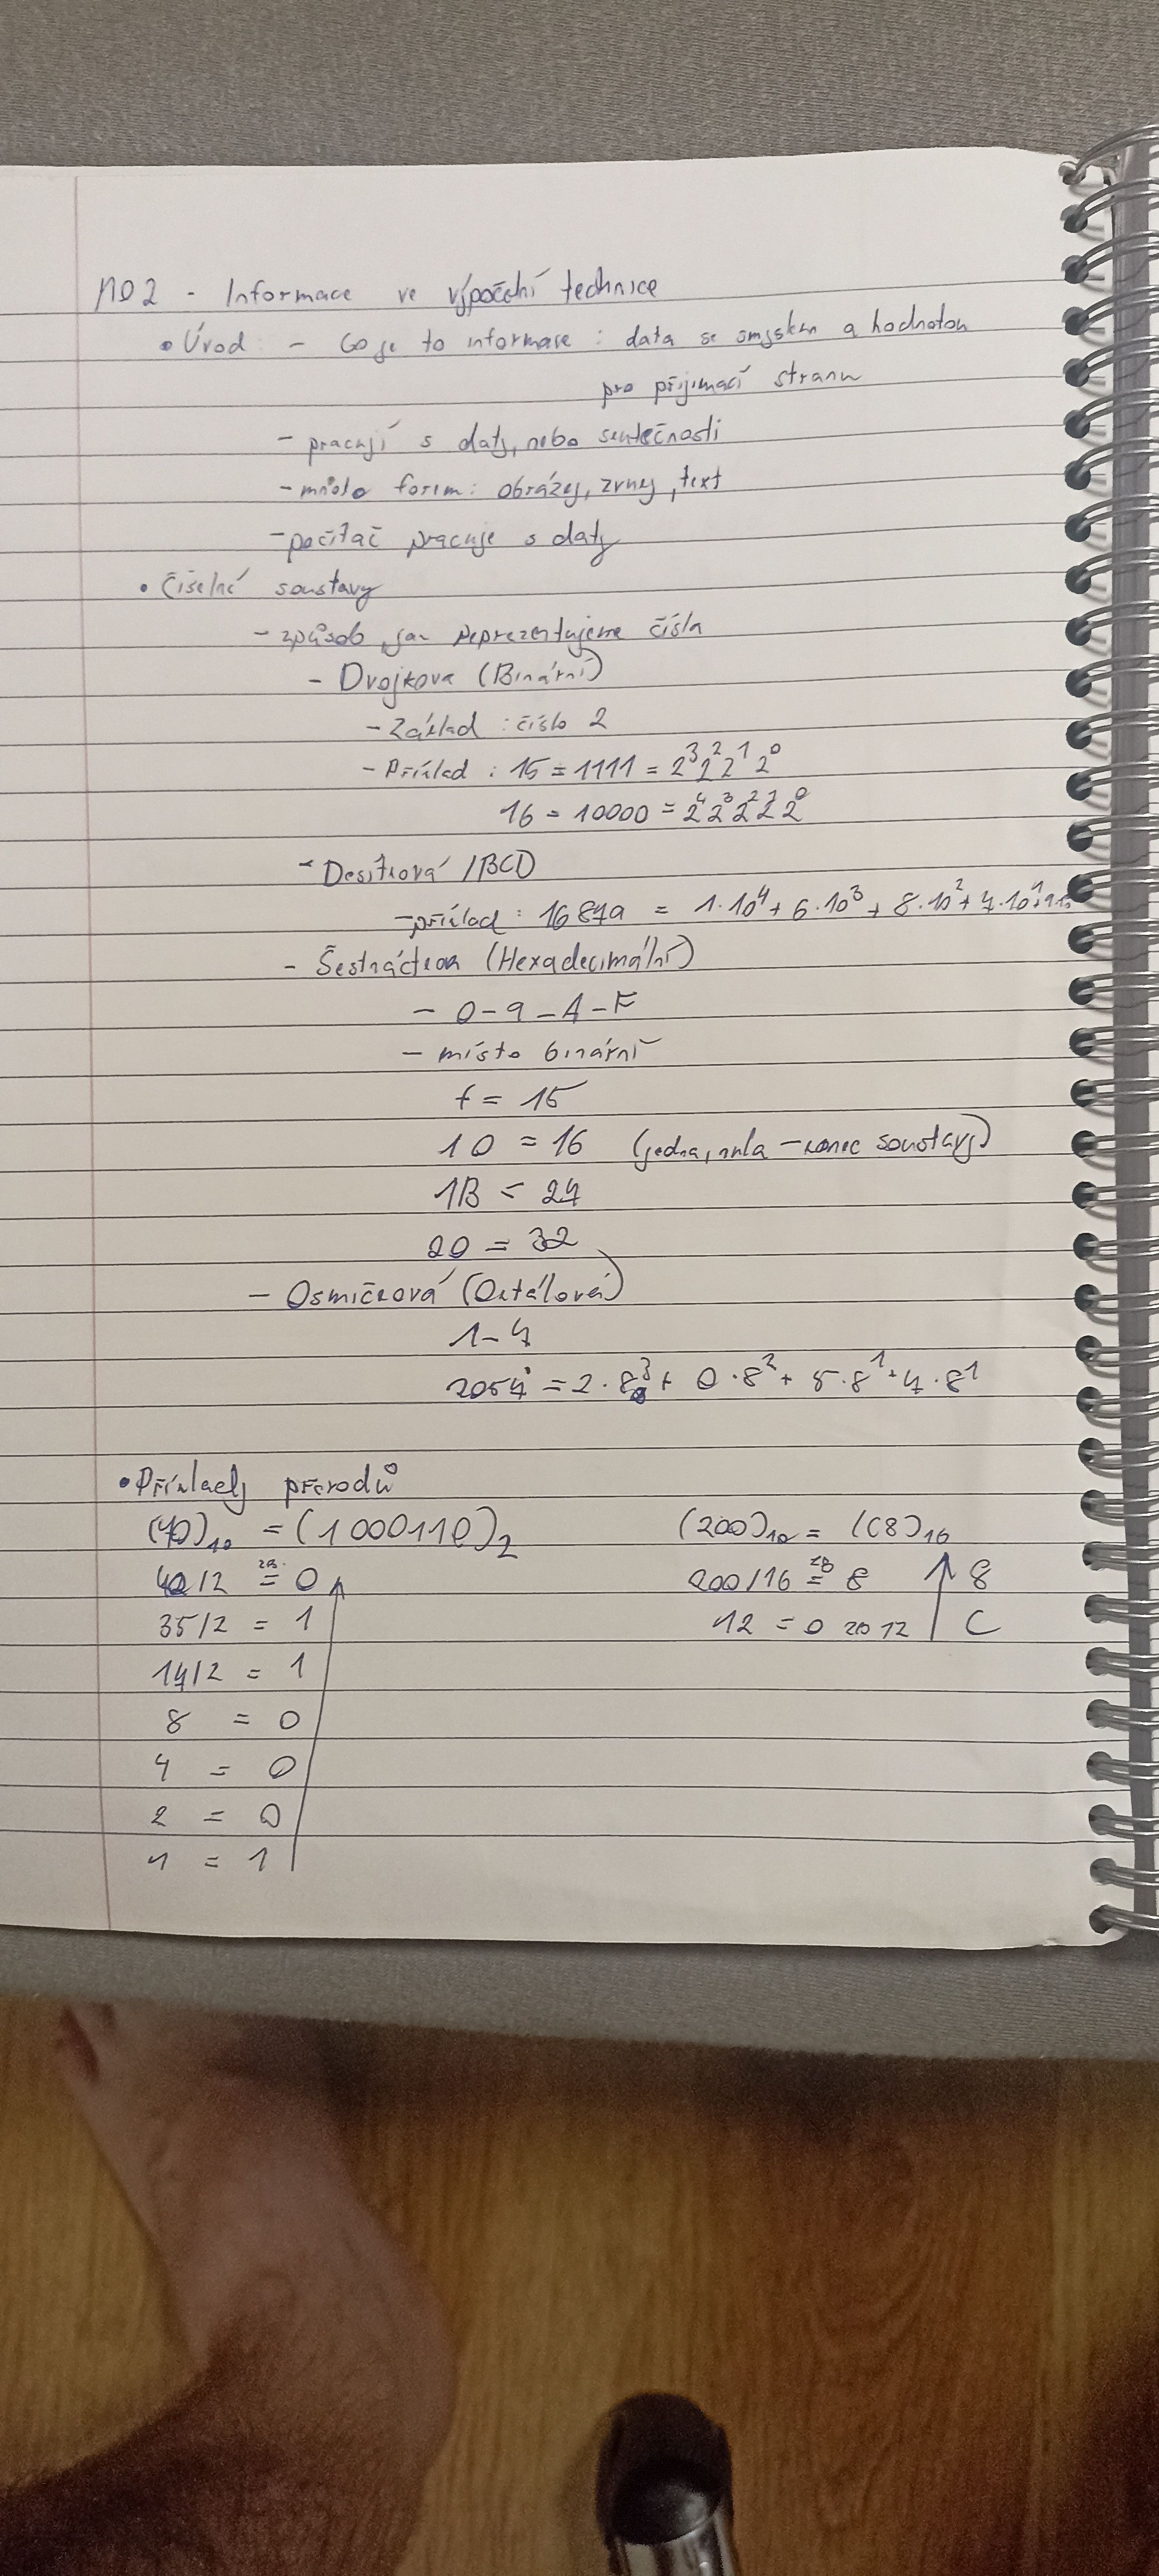 MO2 - Informace ve výpočetní technice
• Úvod: - Co je to informace : data se smyslem a hodnotou
pro přijimací stranu
- pracují s daty, nebo skutečnosti
- mnoho forem: obrázky, zvuky, text
- počítač pracuje s daty
• Číselné soustavy
- způsob, jak reprezentujeme čísla
- Dvojkova (Binární)
- Základ : číslo 2
- Příklad : 15 = 1111 = 2³2²2¹2⁰
16 = 10000 = 2⁴2³2²2¹2⁰
- Desítková /BCD
- příklad : 16879 = 1·10⁴ + 6·10³ + 8·10² + 7·10¹
- Šestnáctkova (Hexadecimální)
- 0-9-A-F
- místo binární
f = 15
10 = 16 (jedna, nula - konec soustavy)
1B = 27
20 = 32
- Osmičková (Oktálová)
1-7
2057 = 2·8³ + 0·8² + 5·8¹ + 7·8¹
• Příklady převodů
(70)₁₀ = (1000110)₂
70/2 = 0
35/2 = 1
17/2 = 1
8 = 0
4 = 0
2 = 0
1 = 1
(200)₁₀ = (C8)₁₆
200/16 zb = 8 ↑ 8
12 = 0 zb 12 C